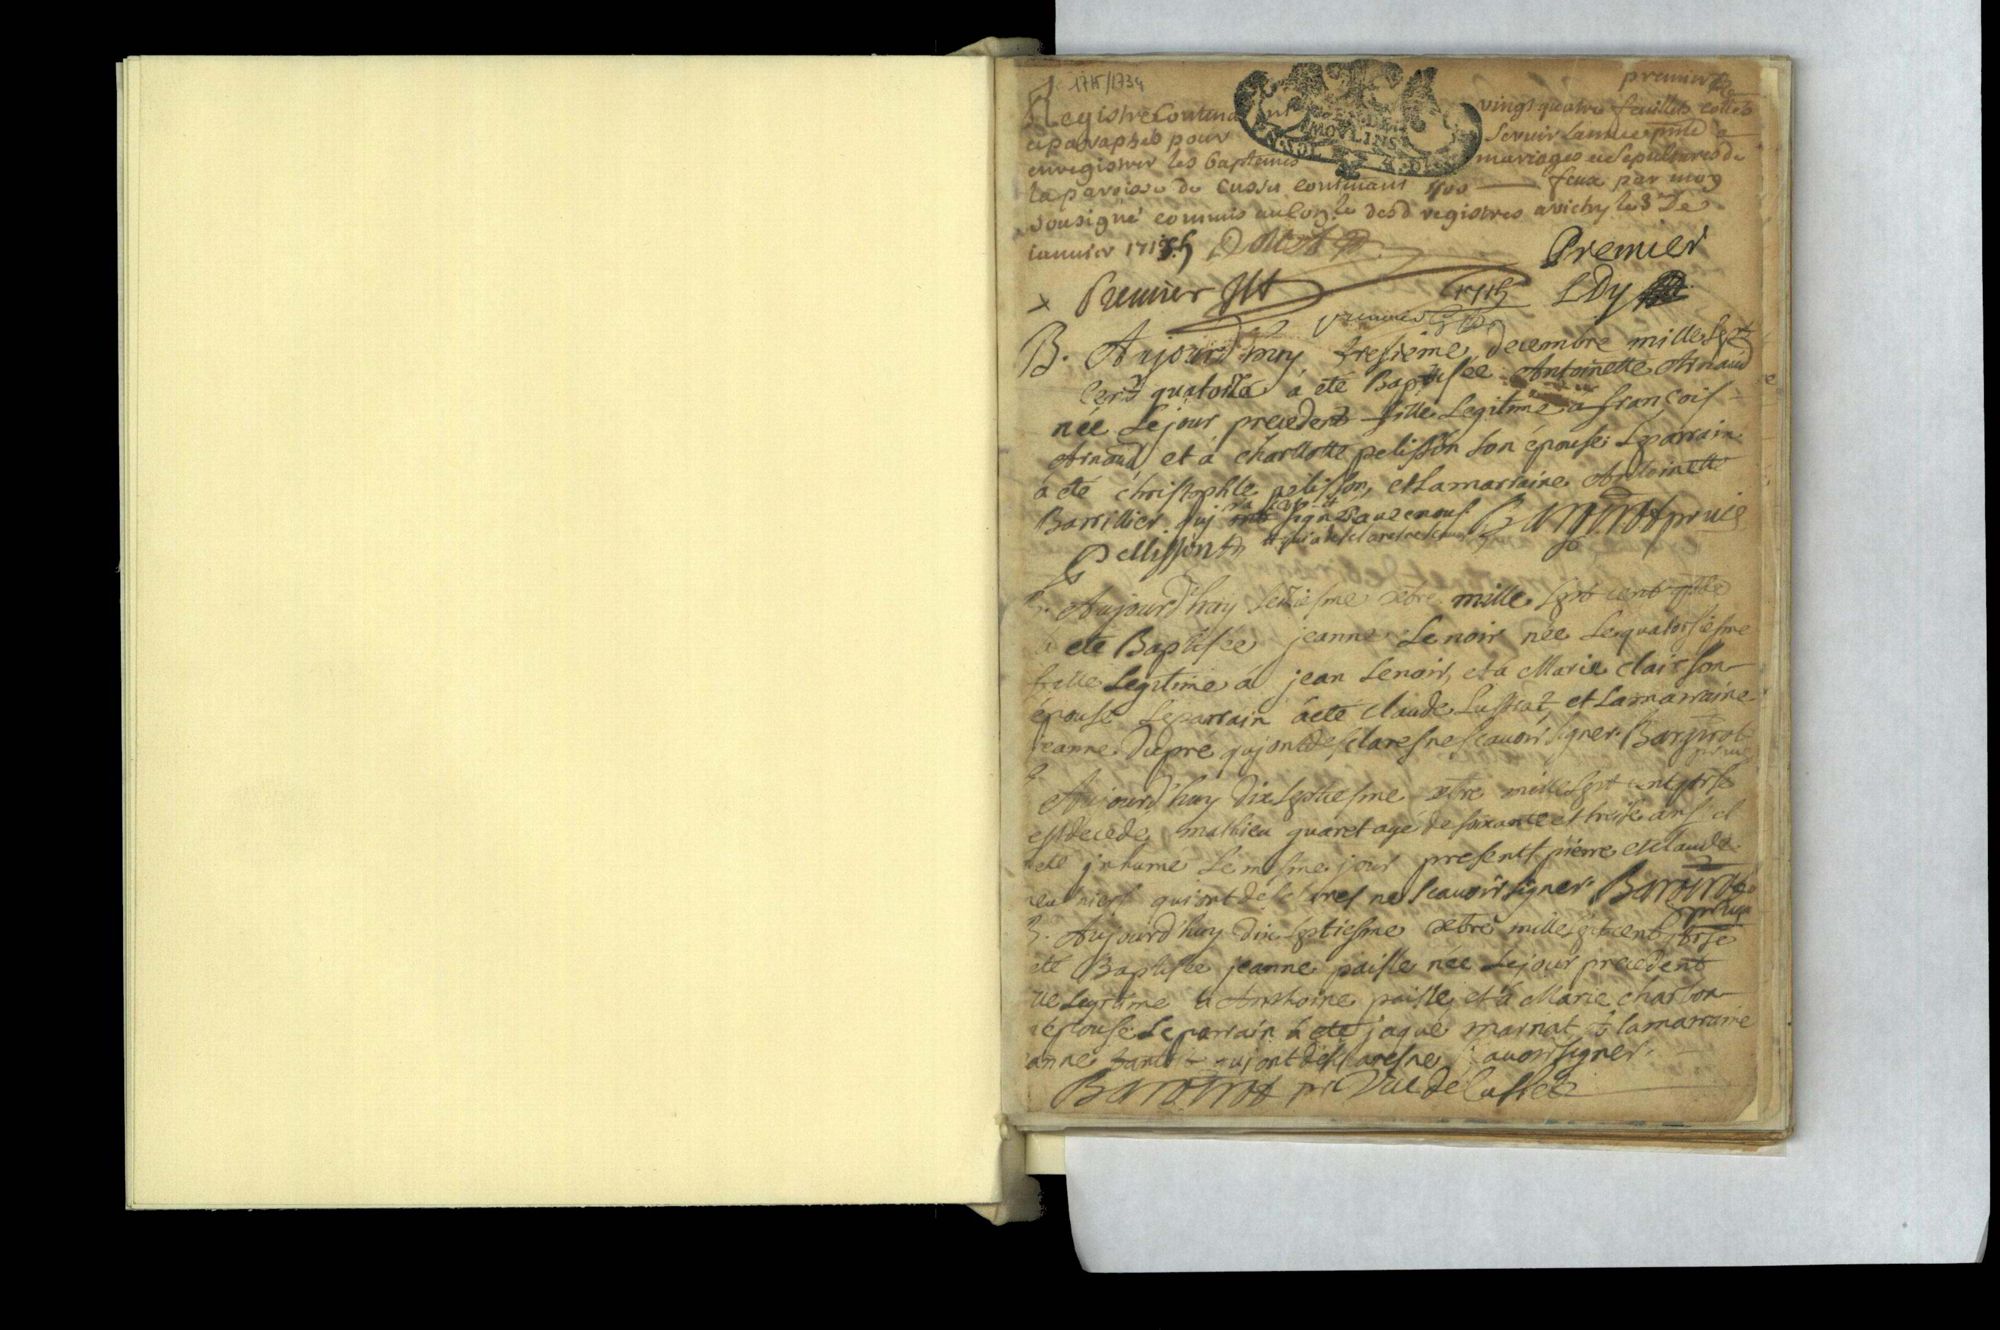 1715/1734
premier
Registre Contenant vingt quatre feuillets cottés
et paraphés pour servir l'année pnte a
enregistrer les baptemes mariages et sepultures de
la paroisse de Cusset contenant 400 feux par moy
sousigné commis au desd registres a vichy le 3e De
Janvier 1715
GENER
MOVLINS
Premier
Premier
1715
B. Aujourd'huy tresieme decembre mille sept
cent quatorze à été Baptisée Antoinette Arnaud
née Le jour precedent fille Legitime à françois
Arnaud et à charlotte pelisson son épouse Le parrain
à été christophle pelisson, et La marraine Antoinette
Barrillier qui signé avec nous
Pellisson
B. Aujourd'huy Seziesme xbre mille sept cent
a eté Baptisée jeanne Lenoir née Le quatorsiesme
fille Legitime à jean Lenoir, et a Marie clair son
épouse Le parrain à été claude et La marraine
jeanne Dupre qui ont desclares ne scavoir signer.
Aujourd'huy dix septiesme xbre mille sept cent
est decede mathieu quaret agé de soixante et treise ans
eté jnhumé Le mesme jour presents pierre et claude
qui ont desclares ne scavoir signer.
B. Aujourd'huy dix septiesme xbre mille sept cent
eté Baptisée jeanne paisle née Le jour precedent
Legitime à Anthoine paisle et à Marie charbon
épouse Le parrain à eté jaque mariat et la marraine
anne qui ont desclares ne scavoir signer.
de Cusset